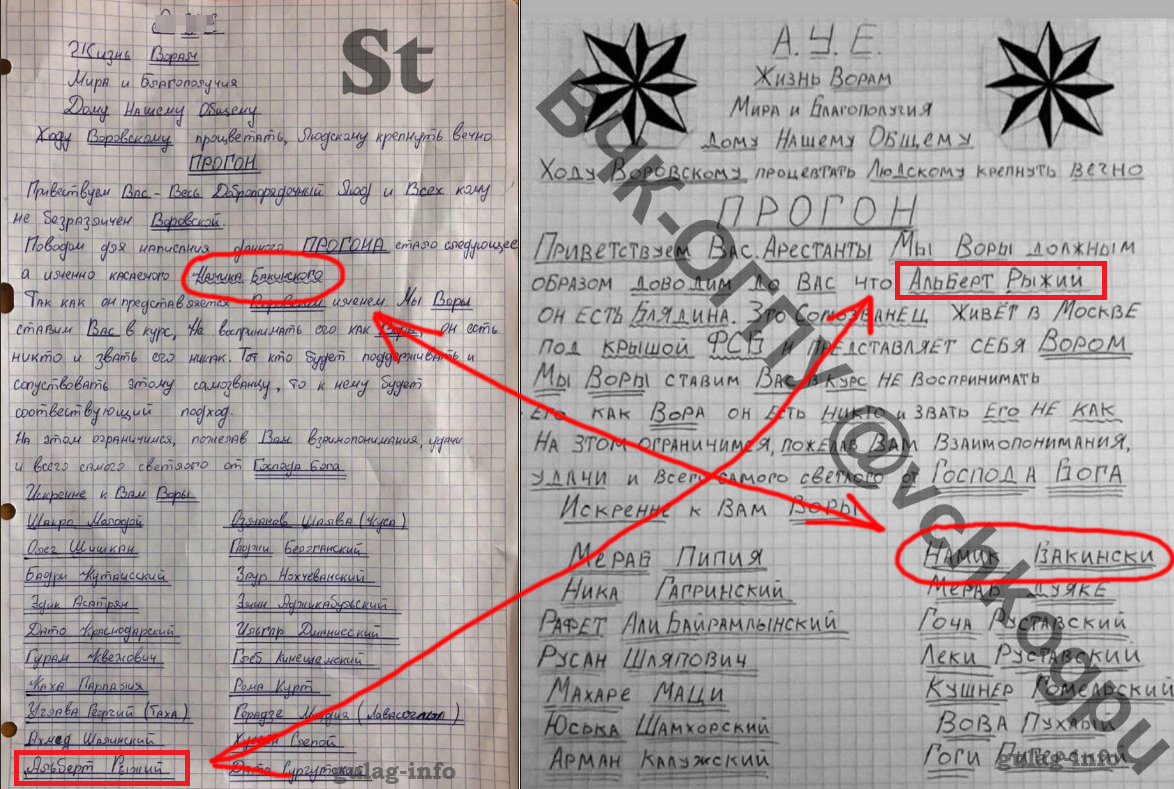 St
Жизнь Ворам
Мира и Благополучия
Дому Нашему Общему
Ходу Воровскому процветать, Людскому крепнуть вечно
ПРОГОН
Приветствуем Вас - Весь Добропорядочный Люд и Всех кому
не безразличен Воровской.
Поводом для написания данного ПРОГОНА стало следующее
а именно касаемого Намика Бакинского
Так как он представляется Воровским именем Мы Воры
ставим Вас в курс, Не воспринимать его как Вора, он есть
никто и звать его никак. Тот кто будет поддерживать и
сопуствовать этому самозванцу, то к нему будет
соотвествующий подход.
На этом ограничимся, пожелав Вам взаимопонимания, удачи
и всего самого светлого от Господа Бога
Искренне к Вам Воры
Шакро Молодой
Олег Шишкан
Бадри Кутаисский
Эдик Асатрян
Дато Краснодарский
Гурам Квежович
Каха Парпалия
Углава Георгий (Таха)
Ахмед Шалинский
Альберт Рыжий
Озманов Шалва (Куса)
Гиоржи Белганский
Заур Нохчеванский
Эмин Аджикабульский
Ильгар Дманисский
Глеб Кинешемский
Рома Курт
Горадзе Мидия
Слепой
Дато Сургутский
gulag-info
А.У.Е.
Жизнь Ворам
Мира и Благополучия
Дому Нашему Общему
Ходу Воровскому процветать Людскому крепнуть вечно
ПРОГОН
Приветствуем Вас Арестанты Мы Воры должным
образом доводим до Вас что Альберт Рыжий
он есть Блядина. Это Сомозванец живёт в Москве
под крышой ФСБ и представляет себя Вором
Мы Воры ставим Вас в курс не воспринимать
Его как Вора он есть никто и звать Его не как
На этом ограничимся, пожелав Вам Взаимопонимания,
удачи и всего самого светлого от Господа Бога
Искренне к Вам Воры
Мераб Пипия
Ника Гагринский
Рафет Али Байрамлынский
Русан Шляпович
Махаре Маци
Юська Шамхорский
Арман Калужский
Намик Бакински
Мераб Дуяке
Гоча Руставский
Леки Руставский
Кушнер Гомельский
Вова Пухлый
Гоги Питерский
gulag-info
ВЧК-ОГПУ @vchkogpu